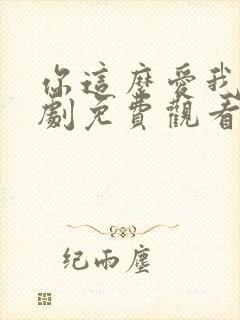 你這麼愛我
劇免費觀看
纪雨塵